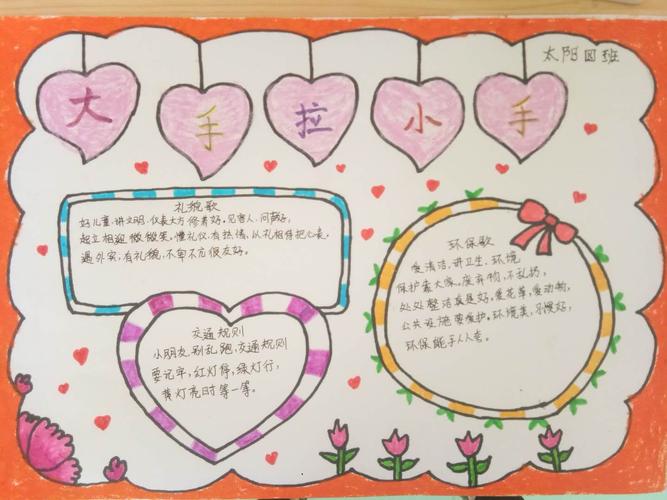 太阳四班
大手拉小手
礼貌歌
好儿童,讲文明,仪表大方修养好。见客人,问声好,
起立相迎微微笑。懂礼仪,有热情,以礼相待把心表。
遇外宾,有礼貌,不卑不亢很友好。
环保歌
爱清洁,讲卫生,环境
保护靠大家。废弃物,不乱扔,
处处整洁真是好。爱花草,爱动物,
公共设施要爱护。环境美,
环保能手人人夸。
交通规则
小朋友,别乱跑,交通规则
要记牢,红灯停,绿灯行,
黄灯亮时等一等。